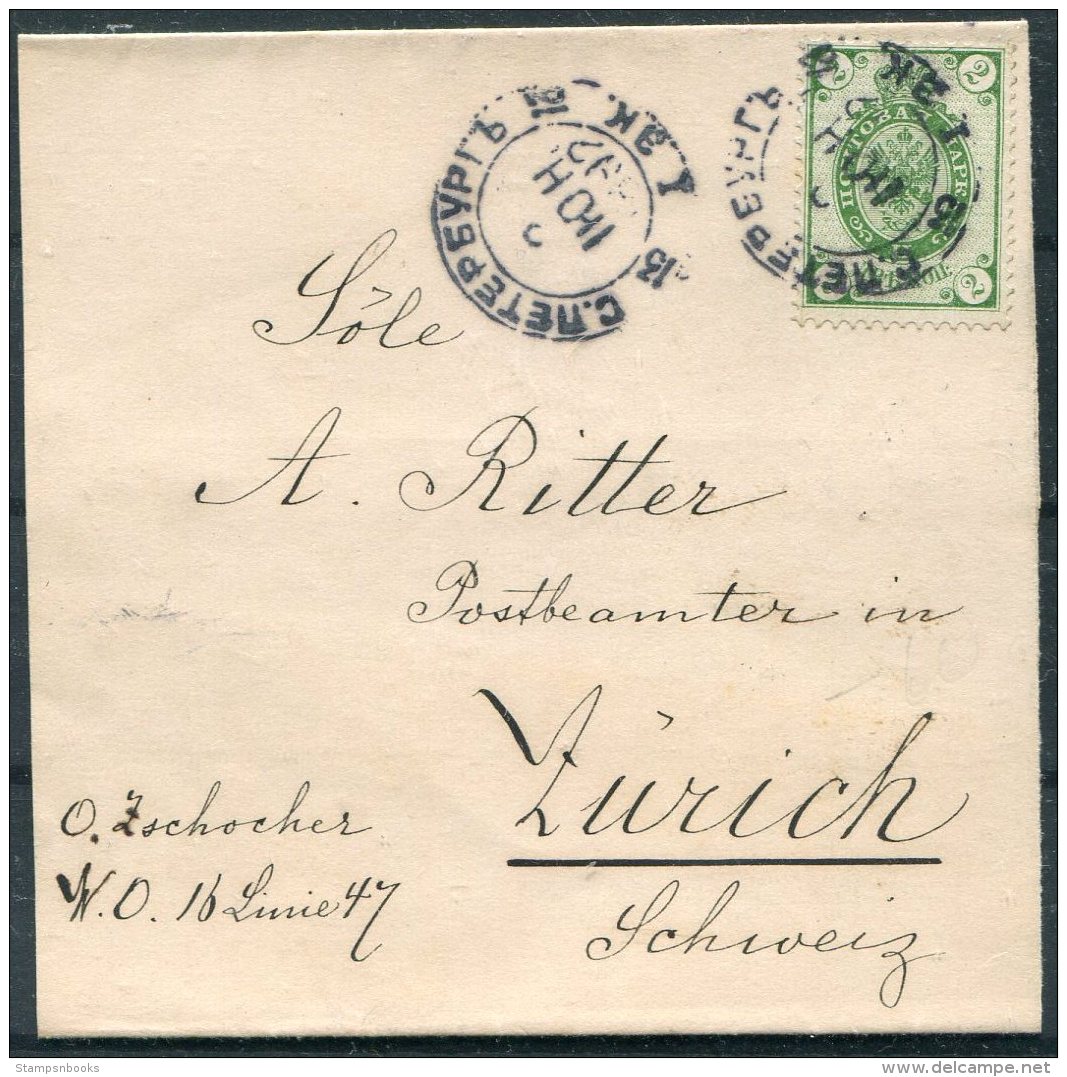 С.ПЕТЕРБУРГЪ
1 ЭК.
ІЮН
С.ПЕТЕРБУРГЪ
1 ЭК
2 2
ПОЧТОВАЯ МАРКА
2 2
Söle
A. Ritter
Postbeamter in
Zürich
Schweiz
O. Zschocher
W.O. 16 Linie 47
Stampsnbooks
delcampe.net